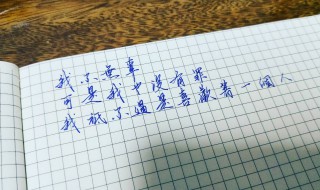 我不無辜
可是我也沒有罪
我祇不過是喜歡着一個人